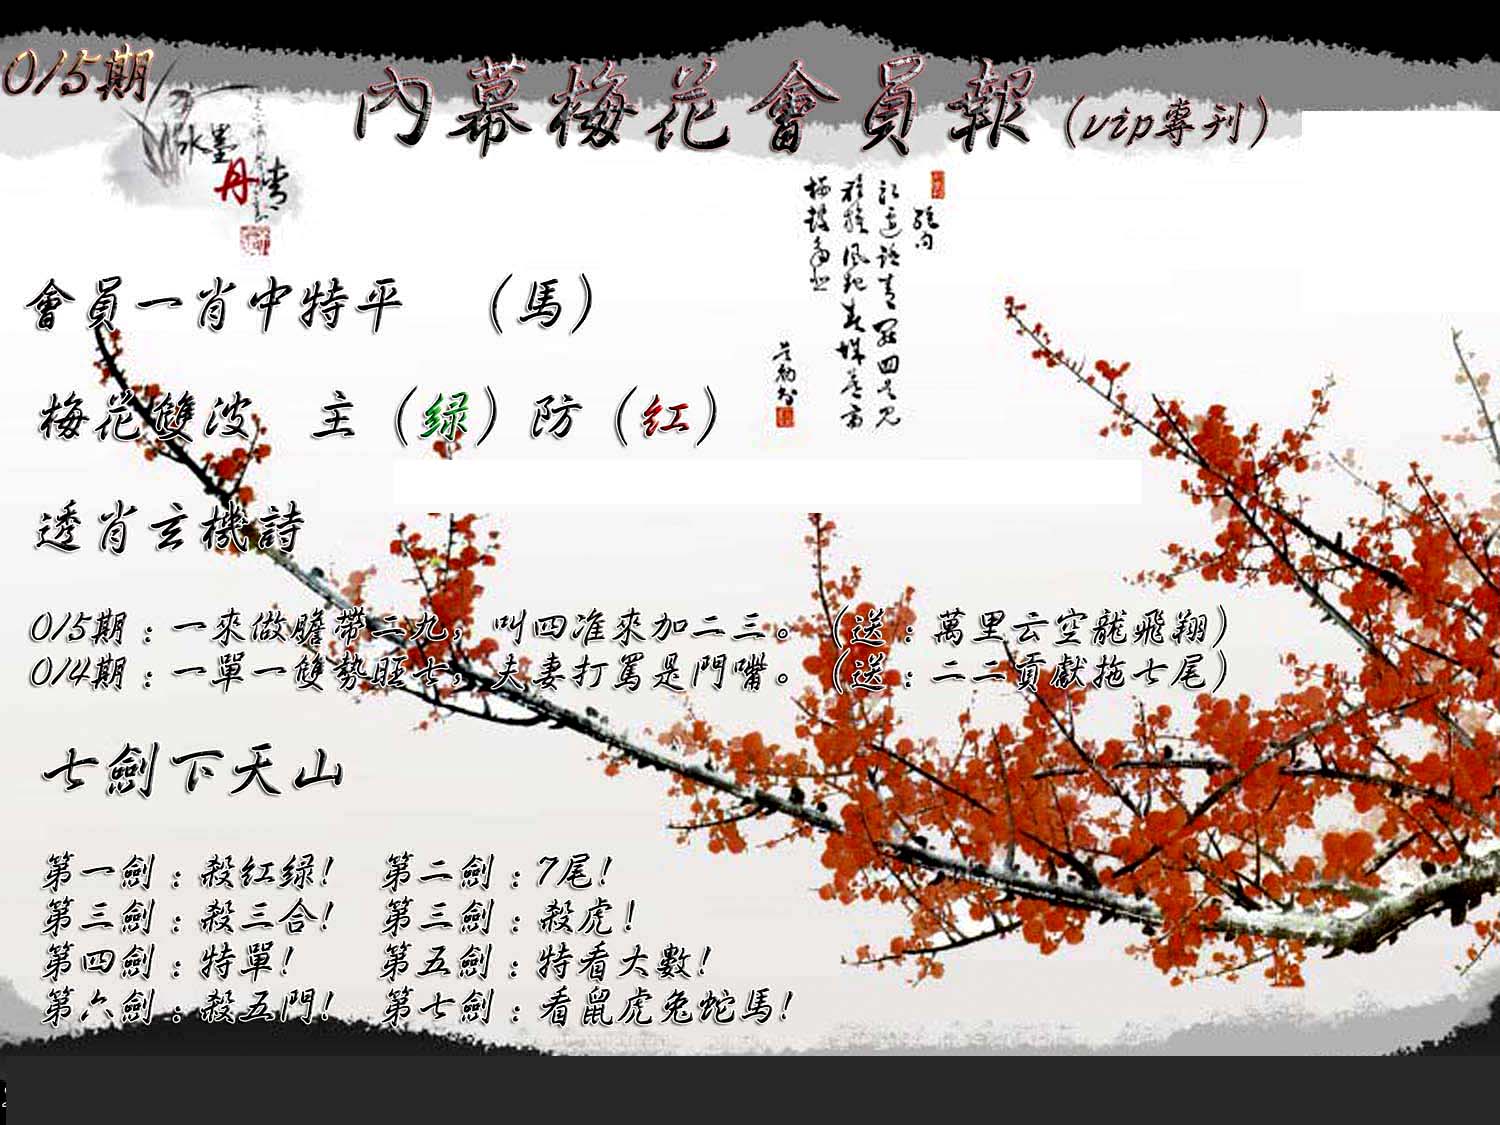 015期
內幕梅花會員報(vip專刊)
水墨
丹青
會員一肖中特平 (馬)
梅花雙波 主(绿)防(红)
透肖玄機詩
015期:一來做膽帶二九,叫四准來加二三。(送:萬里云空龍飛翔)
014期:一單一雙勢旺七,夫妻打罵是門嘴。(送:二二貢獻拖七尾)
七劍下天山
第一劍:殺红绿! 第二劍:7尾!
第三劍:殺三合! 第三劍:殺虎!
第四劍:特單! 第五劍:特看大數!
第六劍:殺五門! 第七劍:看鼠虎兔蛇馬!